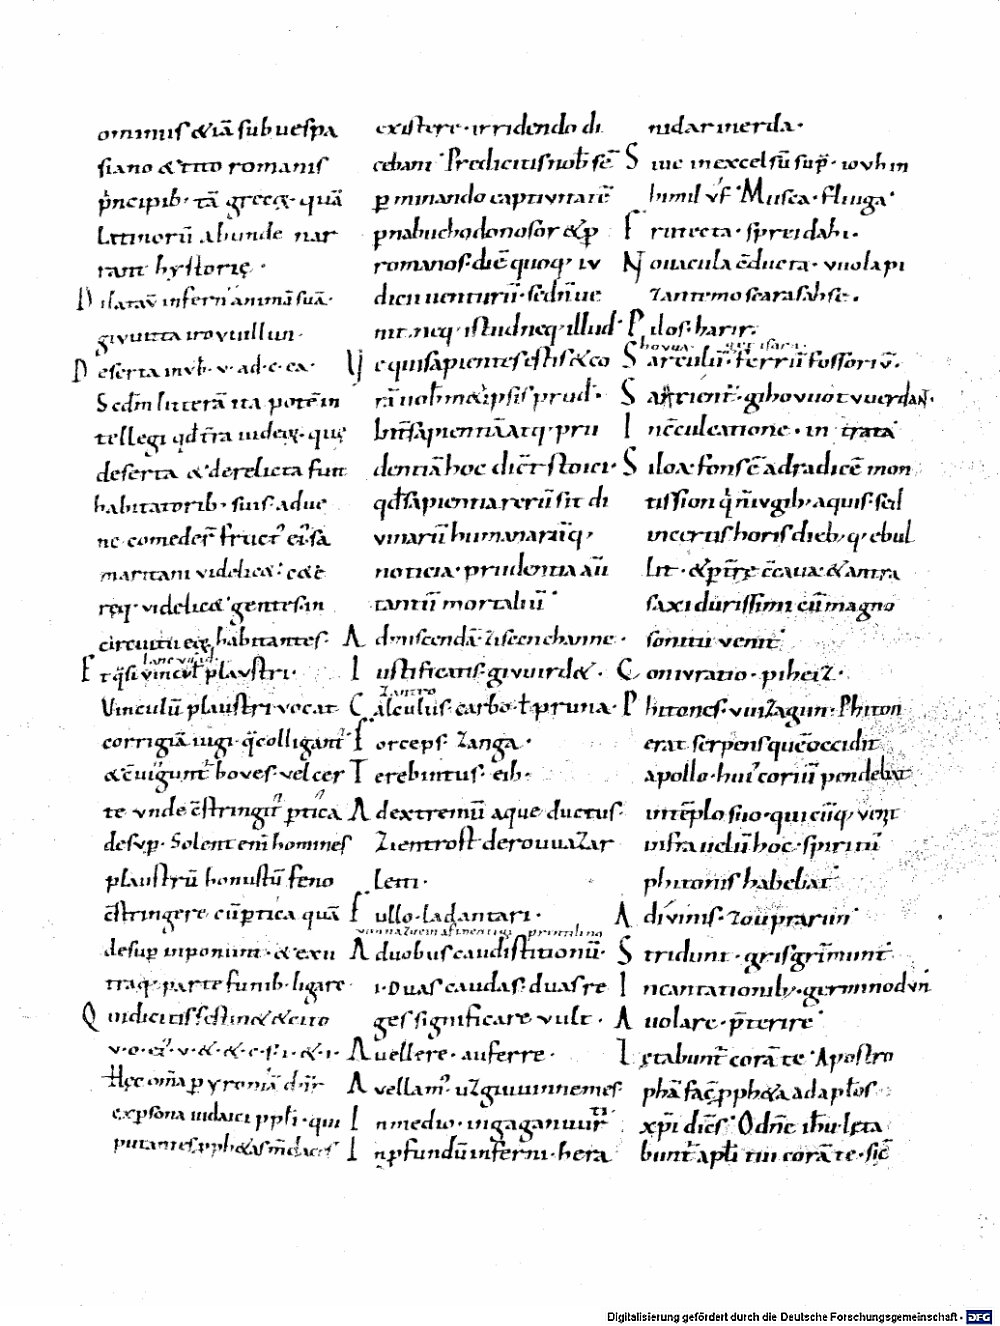 ominus &iā sub uespa
siano & tito romanis
p̍ncipib· tā grecę· quā
Latinorū abunde nar
rant hystorię·
Dilatav̄ infern' animā suā·
givuitta iro vuillun·
Deserta in vƀ· v· ad· c· ea·
Sedm̄ litterā ita potē in
tellegi qđ t̄ra iudeę· quę
deserta & derelicta sunt
habitatorib· suis· adue
ne comeder̄ fruct' ei' sa
maritani videlic&· c&̄e
req· videlic& gentes in
circuitu eię habitantes·
Et q̄si vincul̄ plaustri·
Vinculū plaustri vocat
corrigiā iugi· q̄ colligant'
&̄ cuigunt' boves· vel cer
te vnde c̄stringit' ptica
desup· Solent enī homines
plaustrū honustū feno
c̄stringere cū ptica quā
desup inponunt· & exu
traq· parte funib· ligare·
Qui dicitis festin& & cito
v· o· ei'· v· &· &· c· s· i· &· i·
Hęc om̄a p yroniā d̄nr̄
ex psona iudaici ppl̄i· qui
putantes pph&as m̄daces
existere· irridendo di
cebant· Predicitis nob̄ sē
p minando captivitatē
p nabuchodonosor & p
romanos· diē quoq· iu
dicii uenturū· sed n̄ ue
nit· neq· istud neq· illud·
Ve qui sapientes estis & co
rā uob̄ m& ipsis prud̄·
Int̄ sapientiā atq· pru
dentiā hoc dic̄t stoici·
qđ sapientia rerū sit di
vinarū humanarūq·
noticia· prudentia aū
tantū mortaliū·
Ademiscendā· ziscenchanne·
Iustificatis· givuird&·
zantro
Calculus· carbo· ł pruna·
Forceps· zanga·
Terebintus· eih·
Ad extremū aque ductus·
Zientrost dero vvazar
leiti·
Fullo· ladantari·
A duobus caudis titionū·
·i· Duas caudas· duas re
ges significare vult·
Avellere· auferre·
Avellam'· uzgivuinnemes·
In medio· ingaganuurti
In pfundū inferni· hera
nidar in erda·
Sive in excelsū sup· iovh in
himil vf· Musca· fliuga·
Frutecta· spreidahi·
Novacula c̄ducta· vuolapi
zantemo scarasahse·
Pilos· harir·
hovua· get isarn·
Sarculū· ferrū fossoriū·
Satrient̄· gihovuot vuerdan·
Inc̄culcatione· in trata
Siloa· fons ē ad radicē mon
tis sion q̍ n̄ ivgib· aquis· sed
incertis horis dieb· q· ebul
lit· & p t̄rę c̄cava· & antra
saxi durissimi cū magno
sonitu venit·
Conivratio· piheiz·
Phitones· vuizagun· Phiton
erat serpens quē occidit
apollo· hui' coriū pendebat
in tēplo suo· qui cūq· venit
infra uelū hoc· spiritū
phitonis habebat·
A divinis· zouprarun
Stridunt· grisgrimunt·
Incantationib· germinodvn
Avolare· p̄terire·
Lętabunt' corā te· Apostro
phā fac̄ pph&a ad aptos·
xp̄i dicēs· O dn̄e ihū· lęta
bunt' apl̄i tui corā te· sic̄